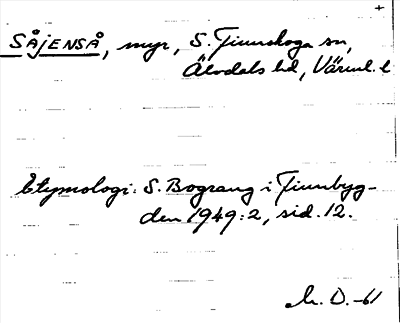 +
SÅJENSÅ, myr, S. Finnskoga sn,
Älvdals hd, Värml. l
Etymologi: S. Bograng i Finnbyg-
den 1949:2, sid. 12.
M. D. -61